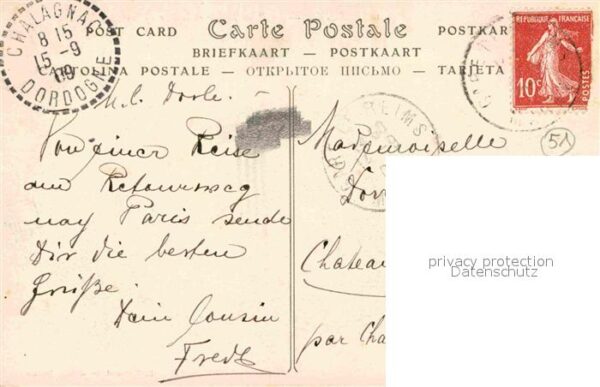 CHALAGNAC
8 15
15-9
DORDOGNE
POST CARD Carte Postale POSTKAR
BRIEFKAART - POSTKAART
CARTOLINA POSTALE - ОТКРЫТОЕ ПИСЬМО - TARJETA
REPUBLIQUE FRANÇAISE
10c
POSTES
REIMS
51
M. l. Dorle. -
Von einer Reise
am Retourweg
nay Paris sende
Dir die besten
Grüße.
Dein Cousin
Fredk
Mademoiselle
Chateau
par Cha
privacy protection
Datenschutz